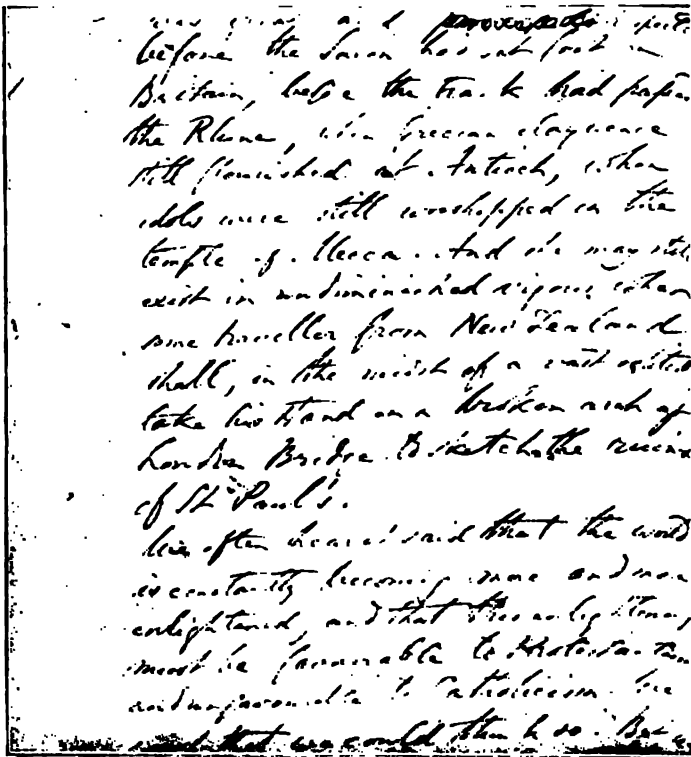 was great and respected
before the Saxon had set foot in
Britain, before the Frank had passed
the Rhine, when Grecian eloquence
still flourished at Antioch, when
idols were still worshipped in the
temple of Mecca. And she may still
exist in undiminished vigour when
some traveller from New Zealand
shall, in the midst of a vast solitude
take his stand on a broken arch of
London Bridge to sketch the ruins
of St Paul's.
We often hear it said that the world
is constantly becoming more and more
enlightened, and that this enlightening
must be favourable to Protestantism
and unfavourable to Catholicism. We
wish that we could think so. But we